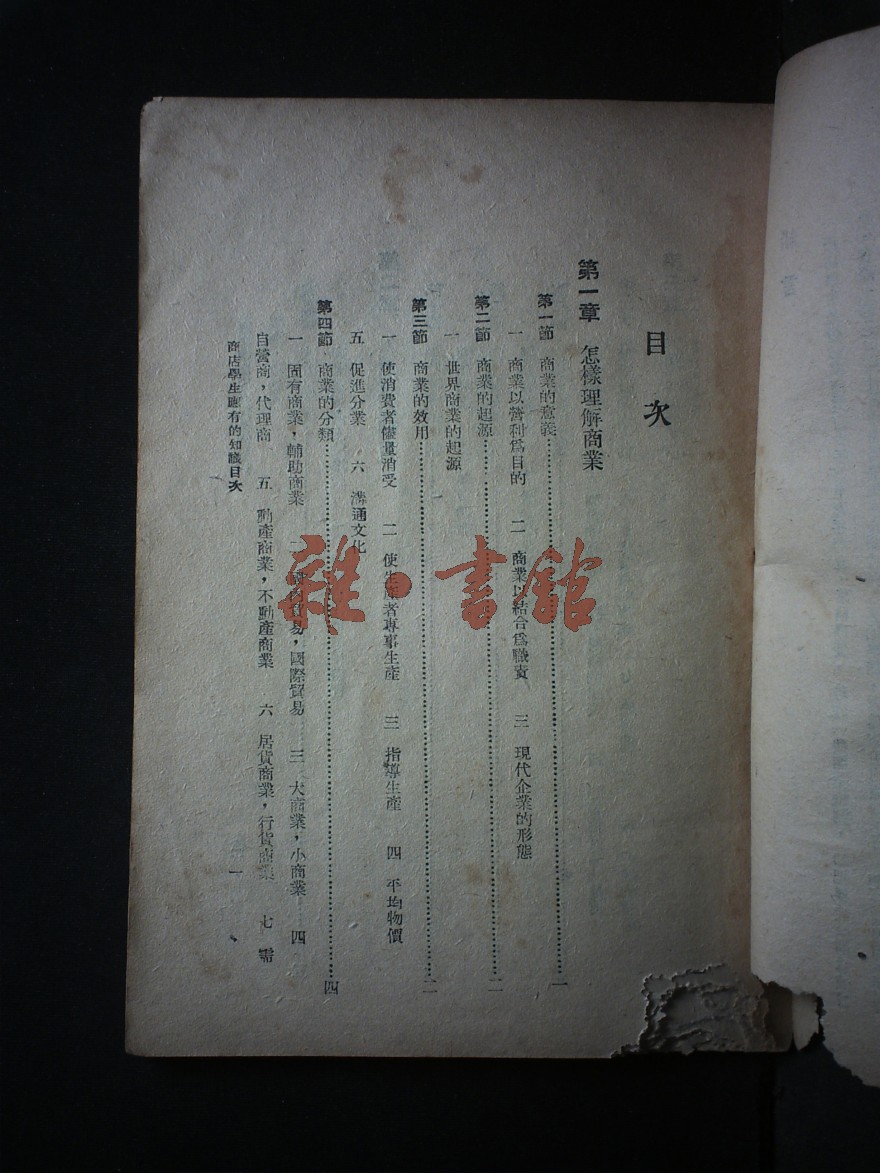 目次
第一章 怎樣理解商業
第一節 商業的意義……一
一 商業以營利爲目的 二 商業以結合爲職責 三 現代企業的形態
第二節 商業的起源……二
一 世界商業的起源
第三節 商業的效用……二
一 使消費者儘量消受 二 使生產者專事生產 三 指導生產 四 平均物價
五 促進分業 六 溝通文化
第四節 商業的分類……四
一 固有商業，輔助商業 貿易，國際貿易 三 大商業，小商業 四
自營商，代理商 五 動產商業，不動產商業 六 居貨商業，行貨商業 七 需
商店學生應有的知識目次 一
雜·書館